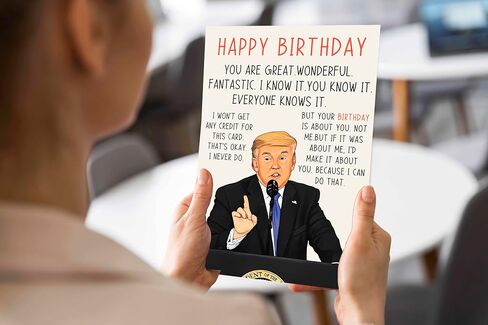 HAPPY BIRTHDAY
YOU ARE GREAT.WONDERFUL.
FANTASTIC. I KNOW IT.YOU KNOW IT.
EVERYONE KNOWS IT.
I WON'T GET
ANY CREDIT FOR
THIS CARD.
THAT'S OKAY
I NEVER DO.
BUT YOUR BIRTHDAY
IS ABOUT YOU. NOT
ME.BUT IF IT WAS
ABOUT ME, I'D
MAKE IT ABOUT
YOU BECAUSE I CAN
DO THAT.
ENT OF THE